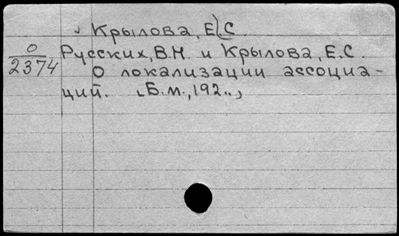 Крылова, Е.С.
О
2374
Русских, В.Н. и Крылова, Е.С.
О локализации ассоциа-
ций. [Б.м., 192..,